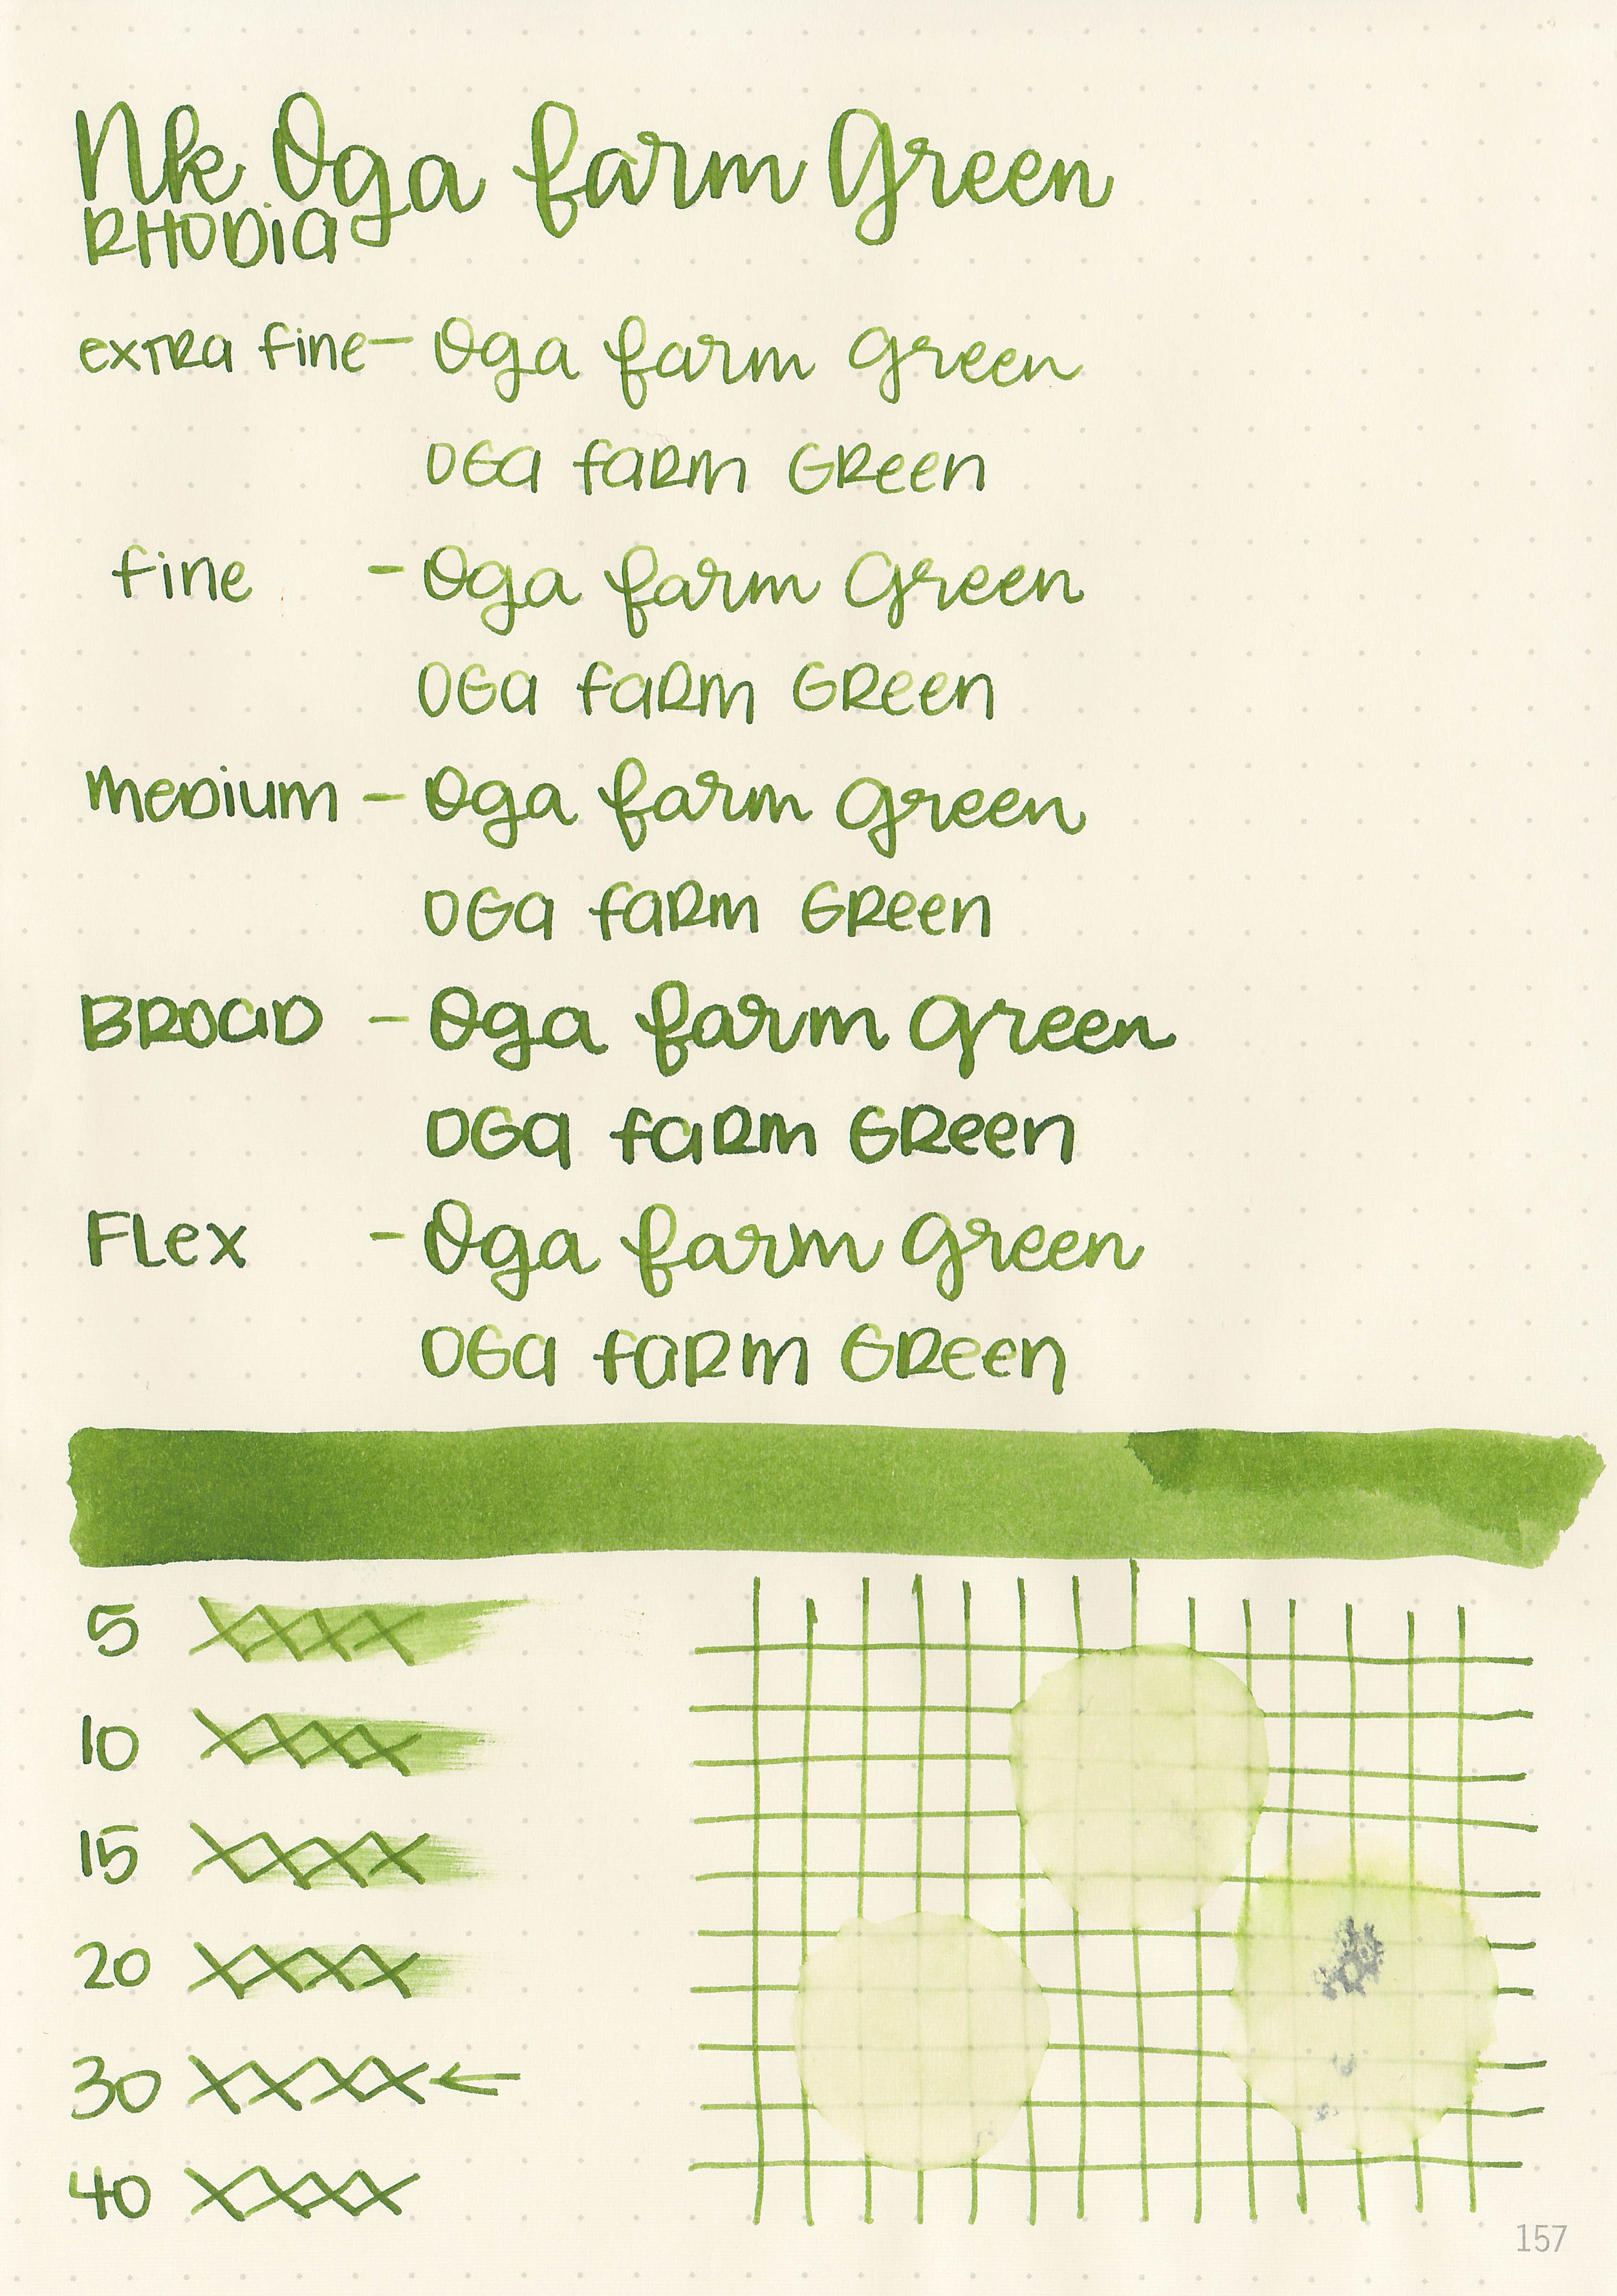 Nk Oga farm Green
RHODIA
extra fine - Oga farm Green
OGa farm Green
fine - Oga farm Green
OGa farm Green
medium - Oga farm Green
OGa farm Green
BROAD - Oga farm Green
OGa farm Green
FLex - Oga farm Green
OGa farm Green
5 XXXX
10 XXXX
15 XXXX
20 XXXX
30 XXXX ←
40 XXXX
157